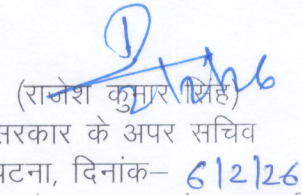 (राजेश कुमार सिंह)
सरकार के अपर सचिव
पटना, दिनांक– 6/2/26